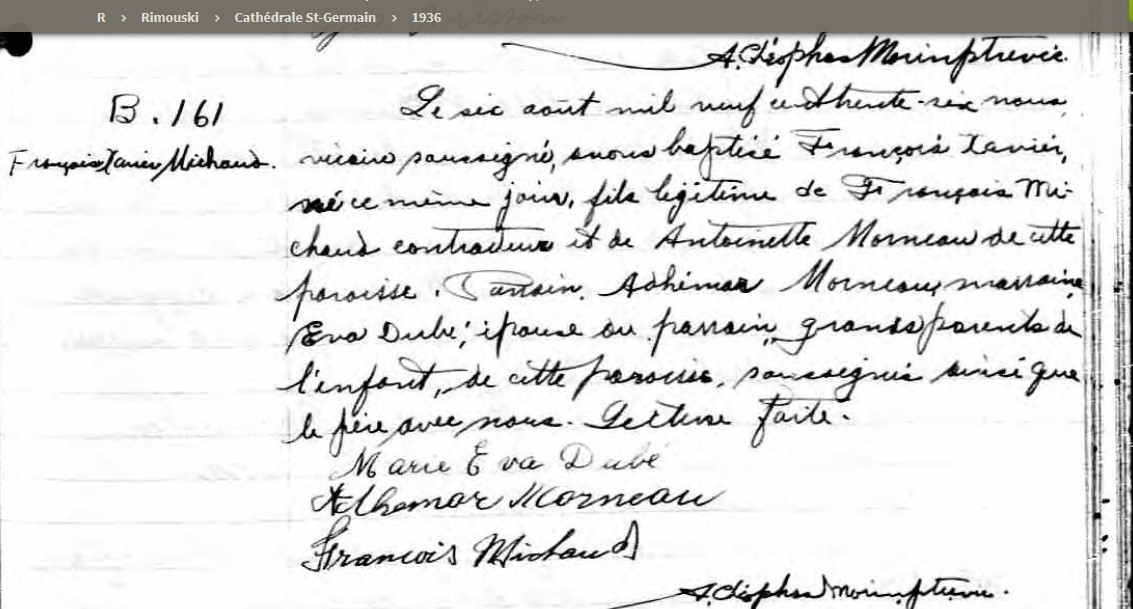 R > Rimouski > Cathédrale St-Germain > 1936
A. Cléophas Morin ptre vic.
B. 161
François Xavier Michaud.
Le six août mil neuf cent trente-six nous,
vicaire soussigné, avons baptisé François Xavier,
né ce même jour, fils légitime de François Mi-
chaud contracteur et de Antoinette Morneau de cette
paroisse. Parrain, Adhémar Morneau, marraine
Eva Dubé, épouse du parrain, grands parents de
l'enfant, de cette paroisse, soussignés ainsi que
le père avec nous. Lecture faite.
Marie Eva Dubé
Adhemar Morneau
Francois Michaud
A. Cléophas Morin ptre vic.